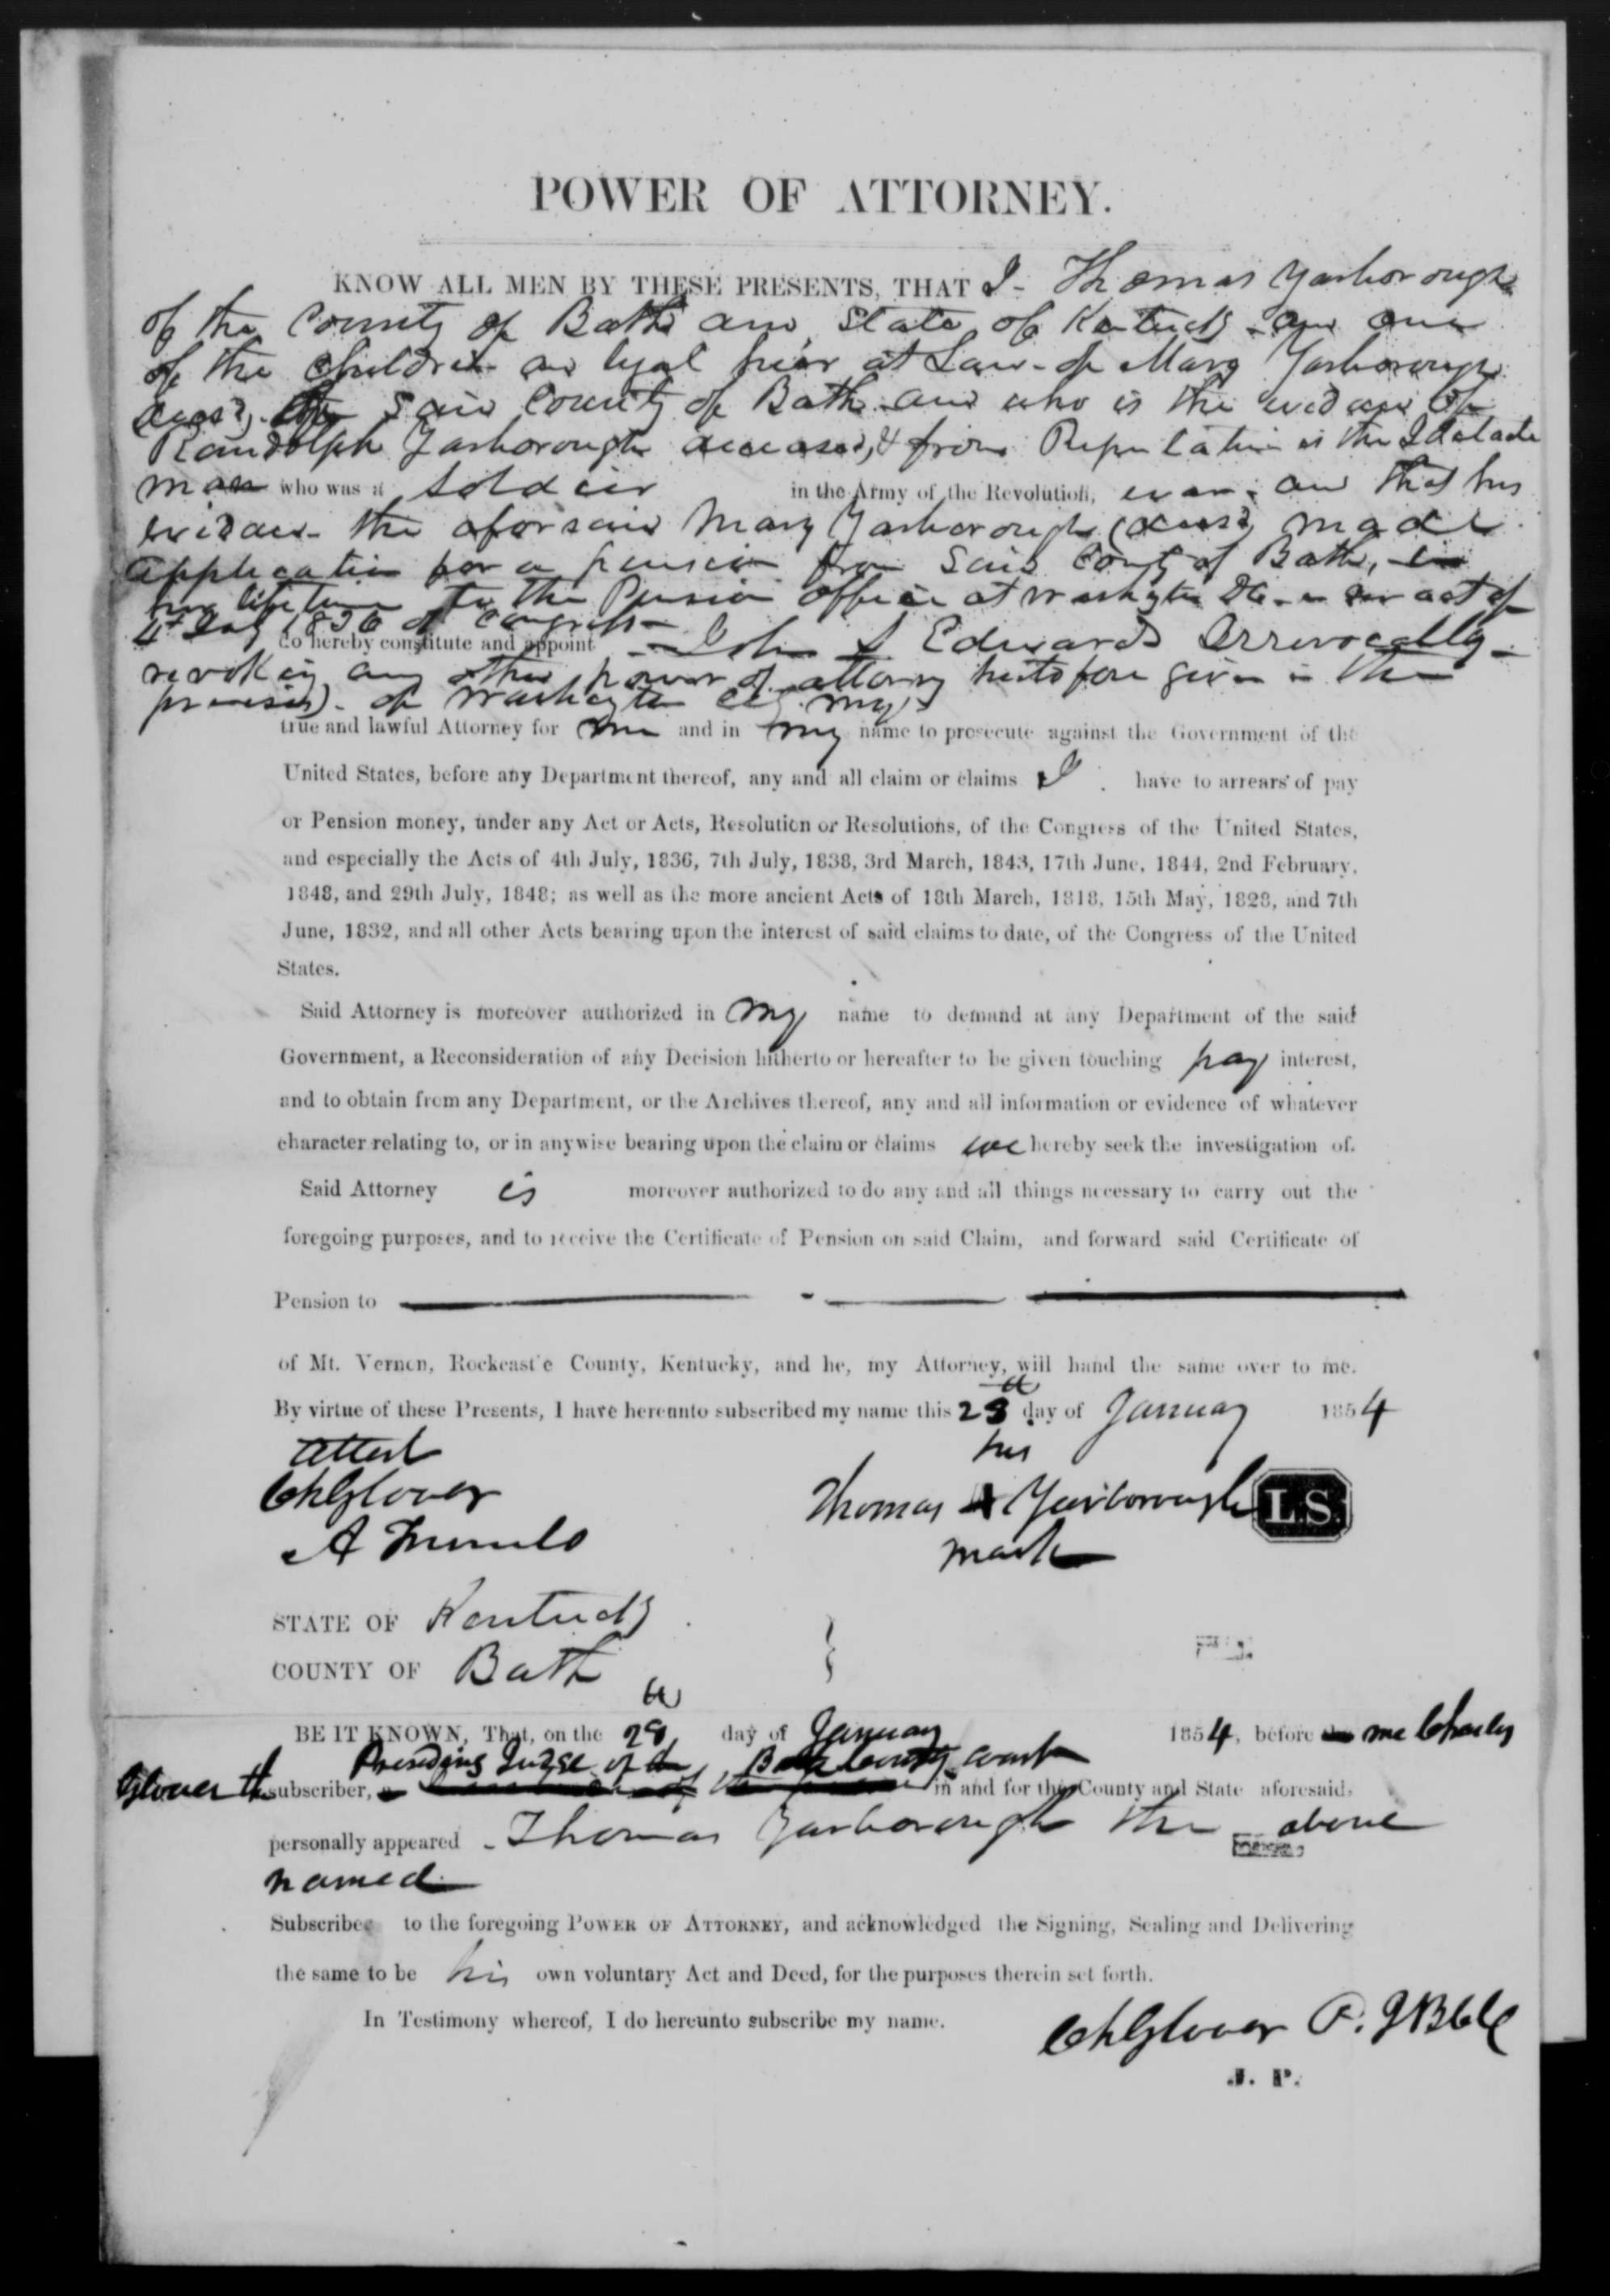 POWER OF ATTORNEY.
KNOW ALL MEN BY THESE PRESENTS, THAT I - Thomas Yarborough
of the County of Bath and State of Kentucky - and one
of the children and legal heir at Law - of Mary Yarborough
decsd, of said County of Bath and who is the widow of
Randolph Yarborough deceased, & from Reputation is the Identical
man who was a soldier in the Army of the Revolution, war; and that his
widow - the aforsaid Mary Yarborough (decsd) made
application for a pension from said County of Bath, in
her life time to the Pension office at Washington act of
4th July 1836 of Congress -
do hereby constitute and appoint - John S Edwards Irrevocally -
revoking any other power of attorney heretofore given in the
premises). of Washington City my
true and lawful Attorney for me and in my name to prosecute against the Government of the
United States, before any Department thereof, any and all claim or claims I have to arrears of pay
or Pension money, under any Act or Acts, Resolution or Resolutions, of the Congress of the United States,
and especially the Acts of 4th July, 1836, 7th July, 1838, 3rd March, 1843, 17th June, 1844, 2nd February,
1848, and 29th July, 1848; as well as the more ancient Acts of 18th March, 1818, 15th May, 1828, and 7th
June, 1832, and all other Acts bearing upon the interest of said claims to date, of the Congress of the United
States.
Said Attorney is moreover authorized in my name to demand at any Department of the said
Government, a Reconsideration of any Decision hitherto or hereafter to be given touching pay interest,
and to obtain from any Department, or the Archives thereof, any and all information or evidence of whatever
character relating to, or in anywise bearing upon the claim or claims we hereby seek the investigation of.
Said Attorney is moreover authorized to do any and all things necessary to carry out the
foregoing purposes, and to receive the Certificate of Pension on said Claim, and forward said Certificate of
Pension to
of Mt. Vernon, Rockcastle County, Kentucky, and he, my Attorney, will hand the same over to me.
By virtue of these Presents, I have hereunto subscribed my name this 28th day of January 1854
Attest
his
ChGlover
Thomas X Yarborough L.S.
A
mark
STATE OF Kentucky
COUNTY OF Bath
BE IT KNOWN, That, on the 28th day of January 1854, before me Charles
Presiding Judge of the Bath County Court
Glover the subscriber, in and for the County and State aforesaid,
personally appeared - Thomas Yarborough the above
named
Subscriber to the foregoing POWER OF ATTORNEY, and acknowledged the Signing, Sealing and Delivering
the same to be his own voluntary Act and Deed, for the purposes therein set forth.
In Testimony whereof, I do hereunto subscribe my name.
ChGlover P.JBCC
J. P.